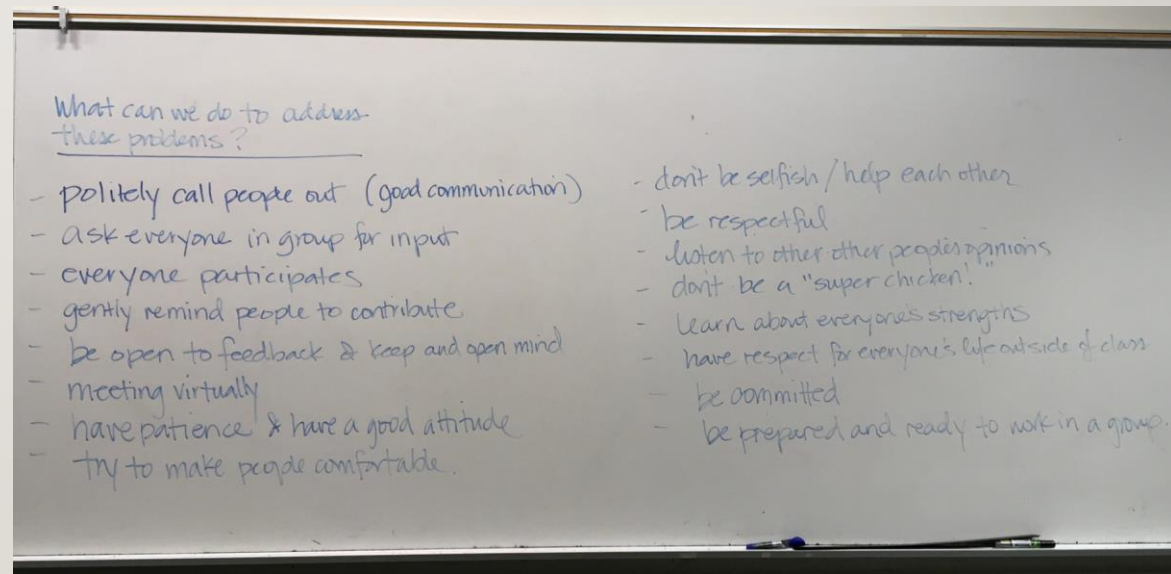 What can we do to address
these problems?
- politely call people out (good communication)
- ask everyone in group for input
- everyone participates
- gently remind people to contribute
- be open to feedback & keep and open mind
- meeting virtually
- have patience & have a good attitude
- try to make people comfortable.
- don't be selfish / help each other
- be respectful
- listen to other other people's opinions
- don't be a "super chicken!"
- learn about everyone's strengths
- have respect for everyone's life outside of class
- be committed
- be prepared and ready to work in a group.